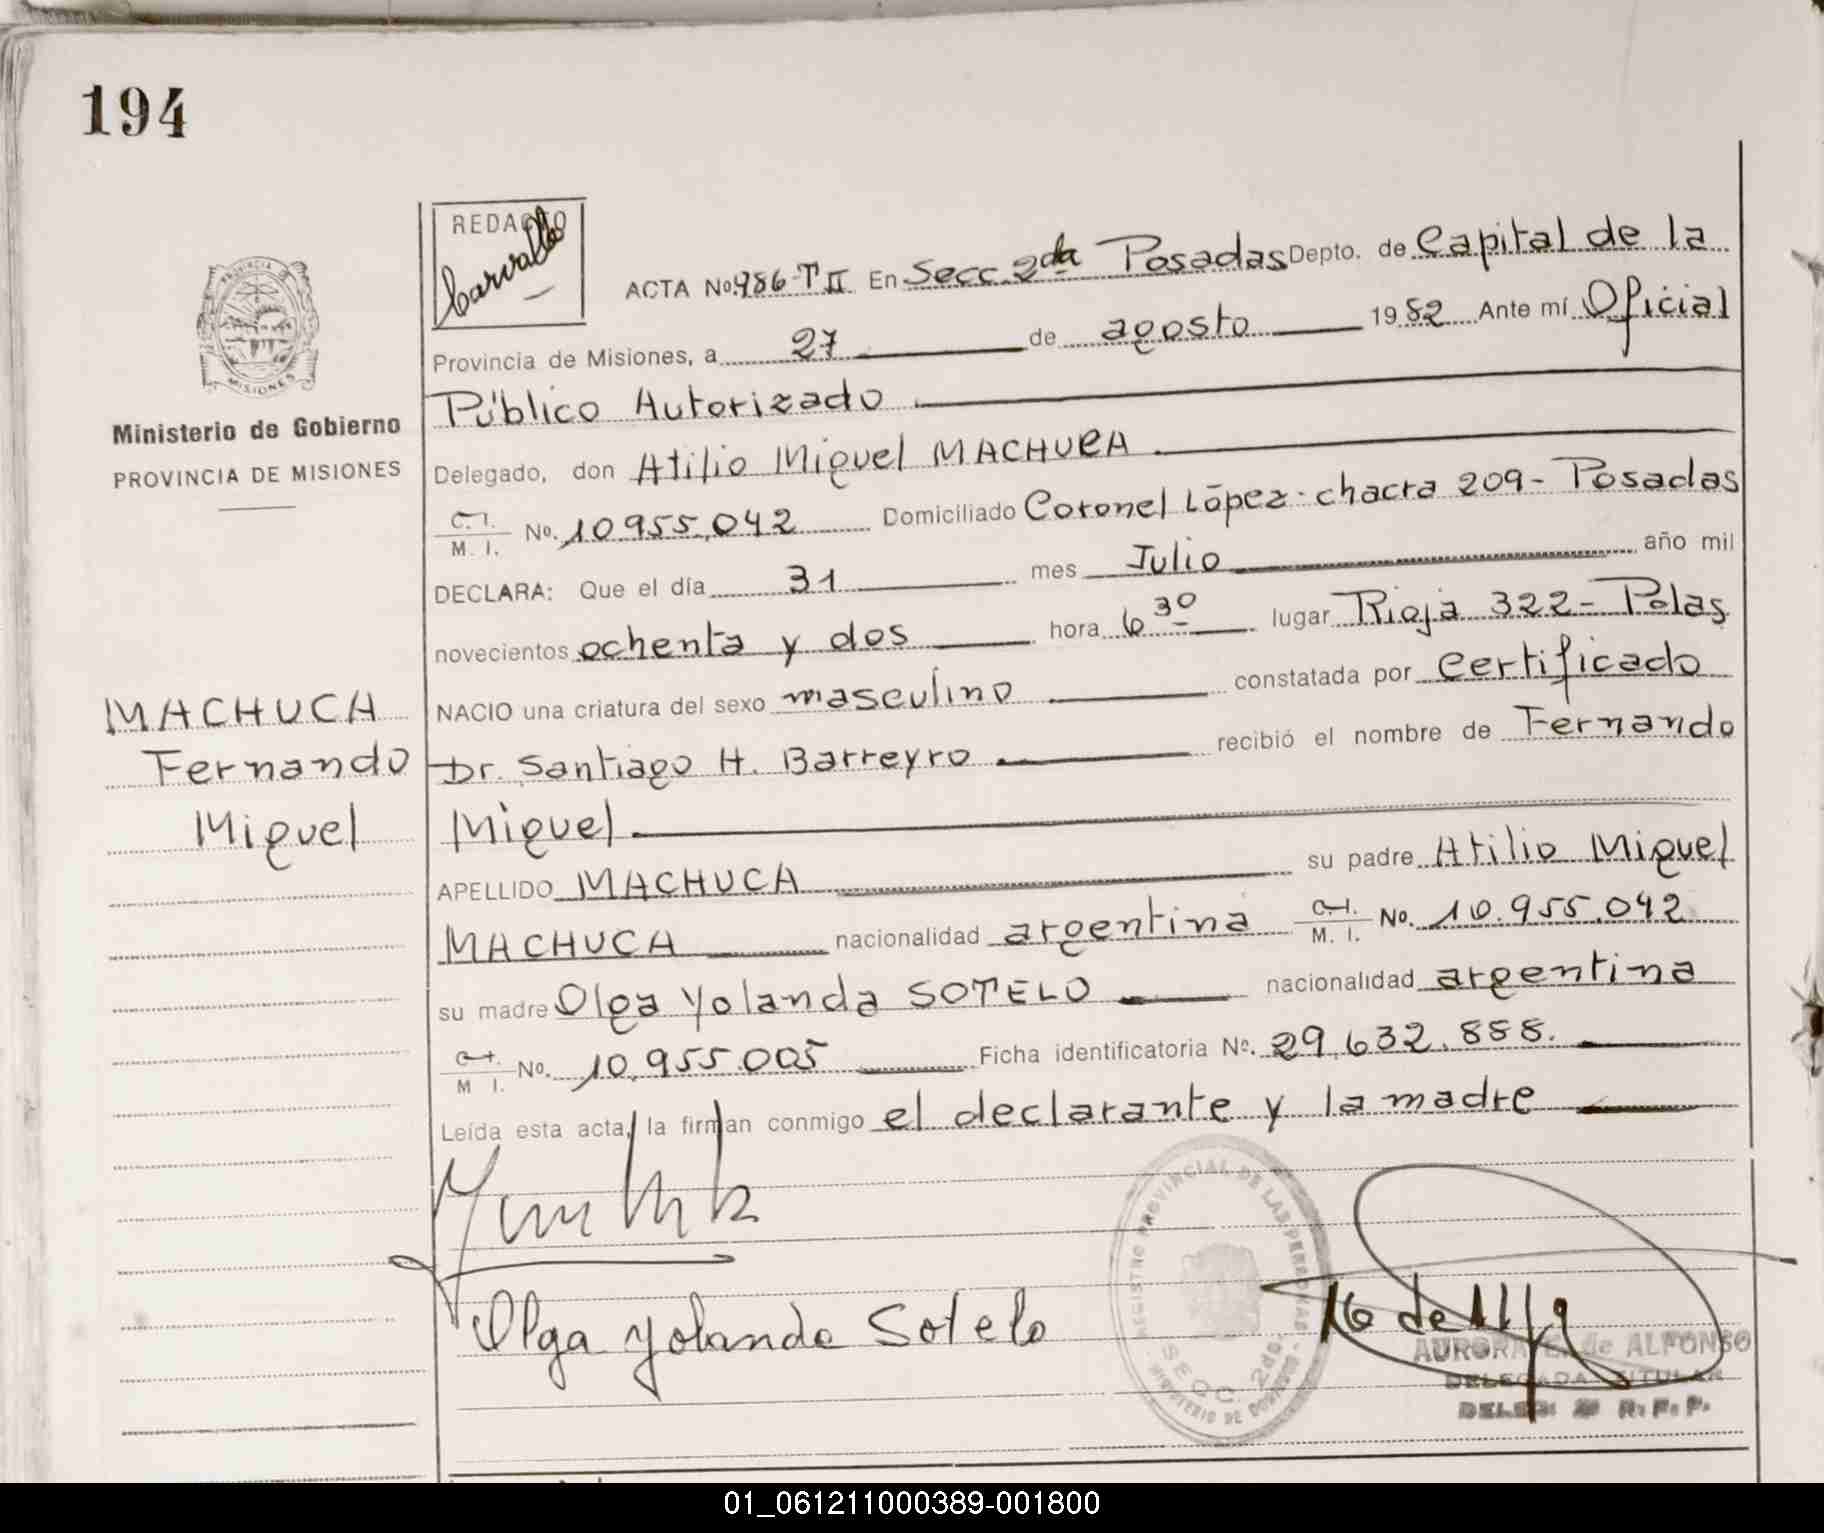 194
REDACTO
Carvallo
ACTA No. 986-T II En Secc. 2da Posadas Depto. de Capital de la
Provincia de Misiones, a 27 de agosto 1982 Ante mí Oficial
Público Autorizado
Ministerio de Gobierno
PROVINCIA DE MISIONES
Delegado, don Atilio Miguel MACHUCA
C.I. M. I. No. 10955.042 Domiciliado Coronel López - chacra 209 - Posadas
DECLARA: Que el día 31 mes Julio año mil
novecientos ochenta y dos hora 6 30 lugar Rioja 322 - Pdas.
NACIO una criatura del sexo masculino constatada por Certificado
MACHUCA
Fernando
Miguel
Dr. Santiago H. Barreyro recibió el nombre de Fernando
Miguel
APELLIDO MACHUCA su padre Atilio Miguel
MACHUCA nacionalidad argentina C.I. M. I. No. 10.955.042
su madre Olga Yolanda SOTELO nacionalidad argentina
C.I. M I. No. 10.955.005 Ficha identificatoria No. 29.632.888.
Leída esta acta, la firman conmigo el declarante y la madre
Olga Yolanda Sotelo
PROVINCIA DE MISIONES
REGISTRO PROVINCIAL DE LAS PERSONAS
SECC. 2da.
MINISTERIO DE GOBIERNO
AURORA de ALFONSO
DELEGADA TITULAR
R. P. P.
01_061211000389-001800